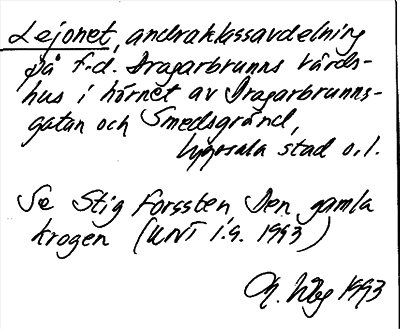 Lejonet, andraklassavdelning
på f.d. Dragarbrunns värds-
hus i hörnet av Dragarbrunns-
gatan och Smedsgränd,
Uppsala stad o.l.
Se Stig Forssten Den gamla
krogen (UNT 1.9. 1993)
1993